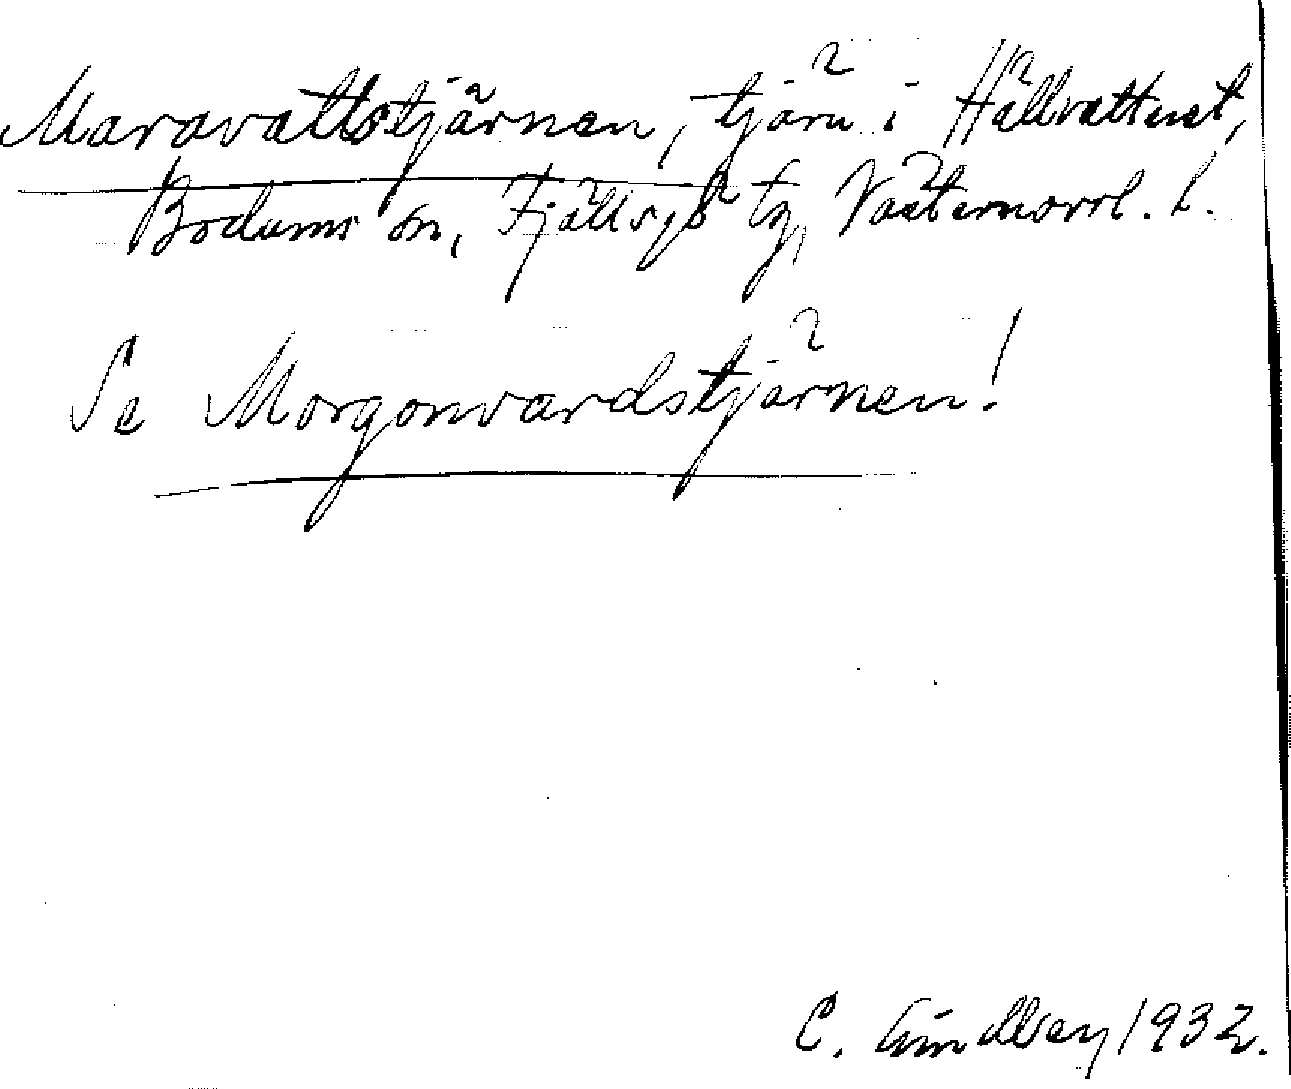 Maravattstjärnen, tjärn i Hällvattnet,
Bodums sn, Fjällsjö tg, Västernorrl. l.
Se Morgonvardstjärnen!
C. Lindberg 1932.